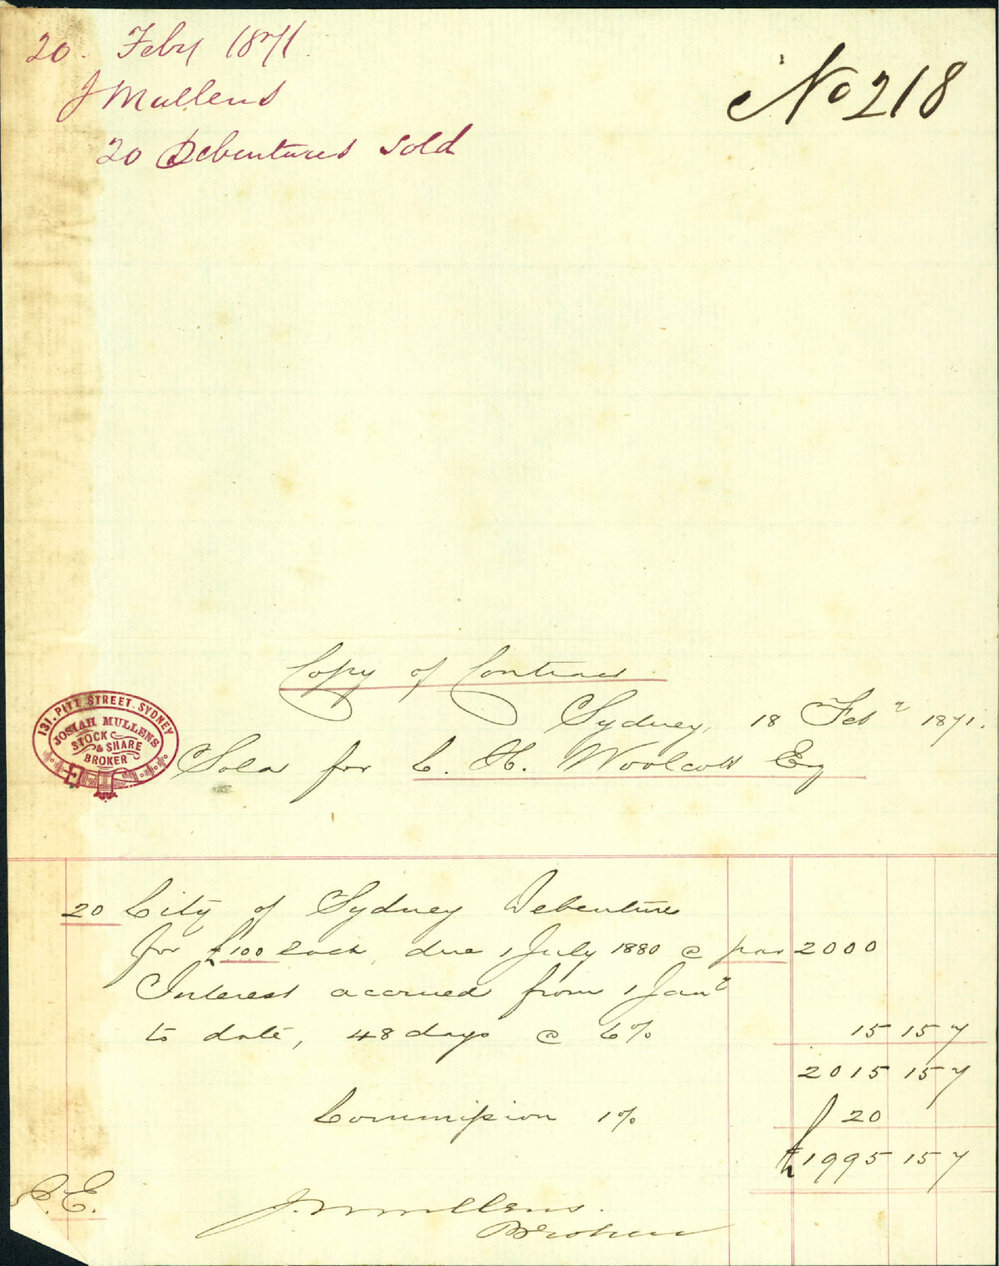 20. Feby 1871.
J Mullens
20 Debentures sold
No 218
Copy of Contract
Sydney, 18 Feby 1871.
131. PITT STREET. SYDNEY
JOSIAH MULLENS
STOCK
& SHARE
BROKER
Sold for C. H. Woolcott Esq
20 City of Sydney Debentures
for £100 each, due 1 July 1880 @ par 2000
Interest accrued from 1 Jany
to date, 48 days @ 6% 15 15 7
2015 15 7
Commission 1% 20
£1995 15 7
E.E.
J. Mullens.
Broker